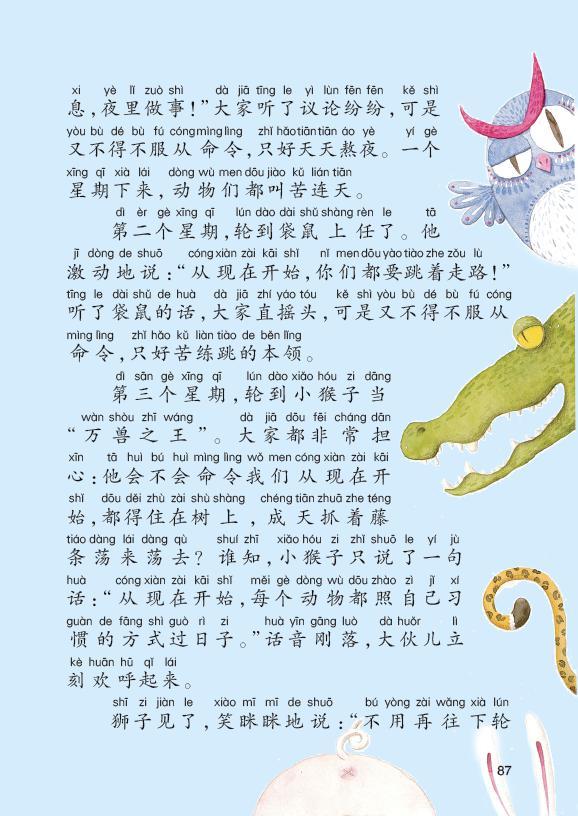 xi yè lǐ zuò shì dà jiā tīng le yì lùn fēn fēn kě shì
息，夜里做事！”大家听了议论纷纷，可是
yòu bù dé bù fú cóng mìng lìng zhǐ hǎo tiān tiān áo yè yí gè
又不得不服从命令，只好天天熬夜。一个
xīng qī xià lái dòng wù men dōu jiào kǔ lián tiān
星期下来，动物们都叫苦连天。
dì èr gè xīng qī lún dào dài shǔ shàng rèn le tā
第二个星期，轮到袋鼠上任了。他
jī dòng de shuō cóng xiàn zài kāi shǐ nǐ men dōu yào tiào zhe zǒu lù
激动地说：“从现在开始，你们都要跳着走路！”
tīng le dài shǔ de huà dà jiā zhí yáo tóu kě shì yòu bù dé bù fú cóng
听了袋鼠的话，大家直摇头，可是又不得不服从
mìng lìng zhǐ hǎo kǔ liàn tiào de běn lǐng
命令，只好苦练跳的本领。
dì sān gè xīng qī lún dào xiǎo hóu zi dāng
第三个星期，轮到小猴子当
wàn shòu zhī wáng dà jiā dōu fēi cháng dān
“万兽之王”。大家都非常担
xīn tā huì bú huì mìng lìng wǒ men cóng xiàn zài kāi
心：他会不会命令我们从现在开
shǐ dōu děi zhù zài shù shàng chéng tiān zhuā zhe téng
始，都得住在树上，成天抓着藤
tiáo dàng lái dàng qù shuí zhī xiǎo hóu zi zhǐ shuō le yí jù
条荡来荡去？谁知，小猴子只说了一句
huà cóng xiàn zài kāi shǐ měi gè dòng wù dōu zhào zì jǐ xí
话：“从现在开始，每个动物都照自己习
guàn de fāng shì guò rì zi huà yīn gāng luò dà huǒr lì
惯的方式过日子。”话音刚落，大伙儿立
kè huān hū qǐ lái
刻欢呼起来。
shī zi jiàn le xiào mī mī de shuō bú yòng zài wǎng xià lún
狮子见了，笑眯眯地说：“不用再往下轮
87